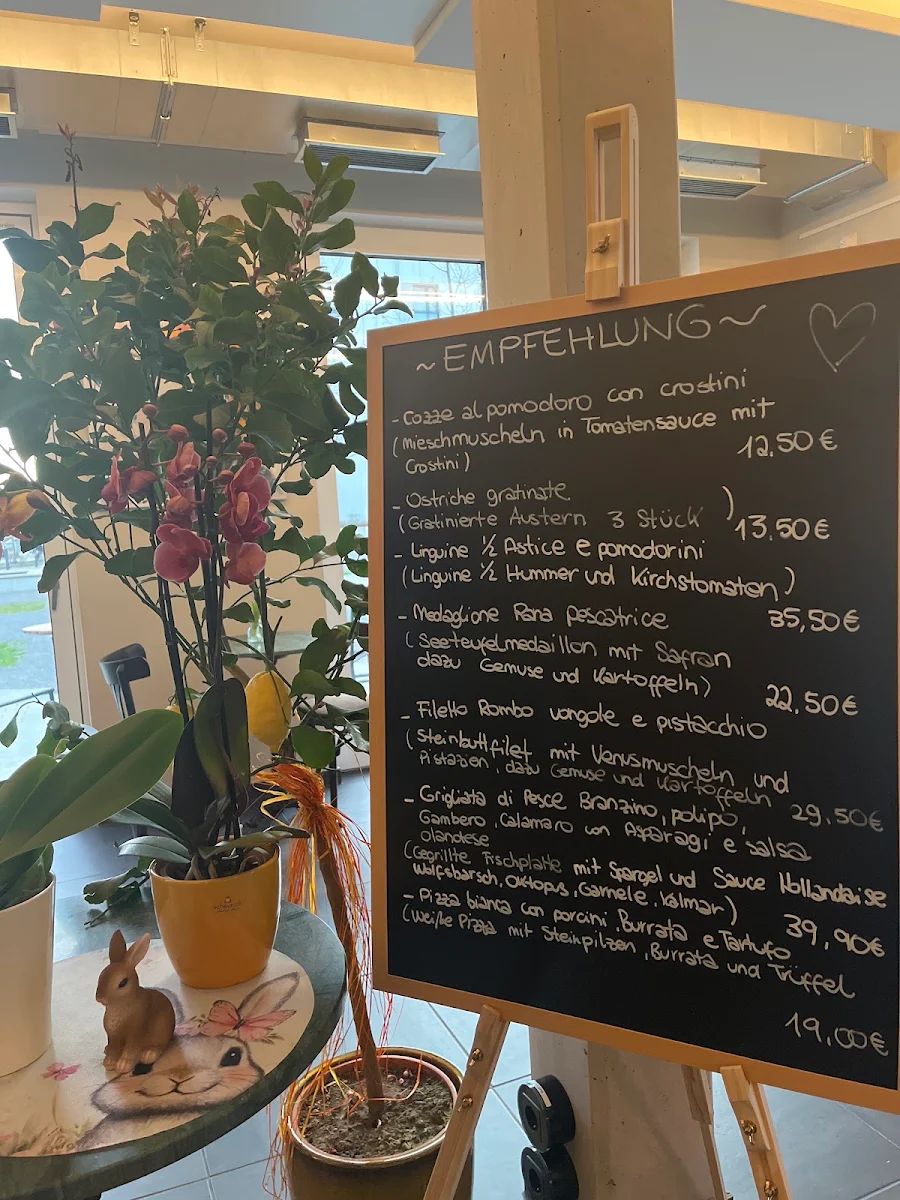 ~EMPFEHLUNG~
- Cozze al pomodoro con crostini
(Mieschmuscheln in Tomatensauce mit
Crostini)
12.50€
- Ostriche gratinate
(Gratinierte Austern 3 Stück)
13.50€
- Linguine ½ Astice e pomodorini
(Linguine ½ Hummer und Kirchstomaten)
35,50€
- Medaglione Rana Pescatrice
(Seeteufelmedaillon mit Safran
dazu Gemuse und Kartoffeln)
22,50€
- Filetto Rombo vongole e pistacchio
(Steinbuttfilet mit Venusmuscheln und
Pistazien, dazu Gemuse und Kartoffeln
29,50€
- Grigliata di Pesce Branzino, polipo,
Gambero, Calamaro con Asparagi e salsa
olandese
(Gegrillte Fischplatte mit Spargel und Sauce Hollandaise
Wolfsbarsch, Oktopus, Garnele, Kalmar)
39,90€
- Pizza bianca con porcini, Burrata e Tartufo
(Weiße Pizza mit Steinpilzen, Burrata und Trüffel
19,00€